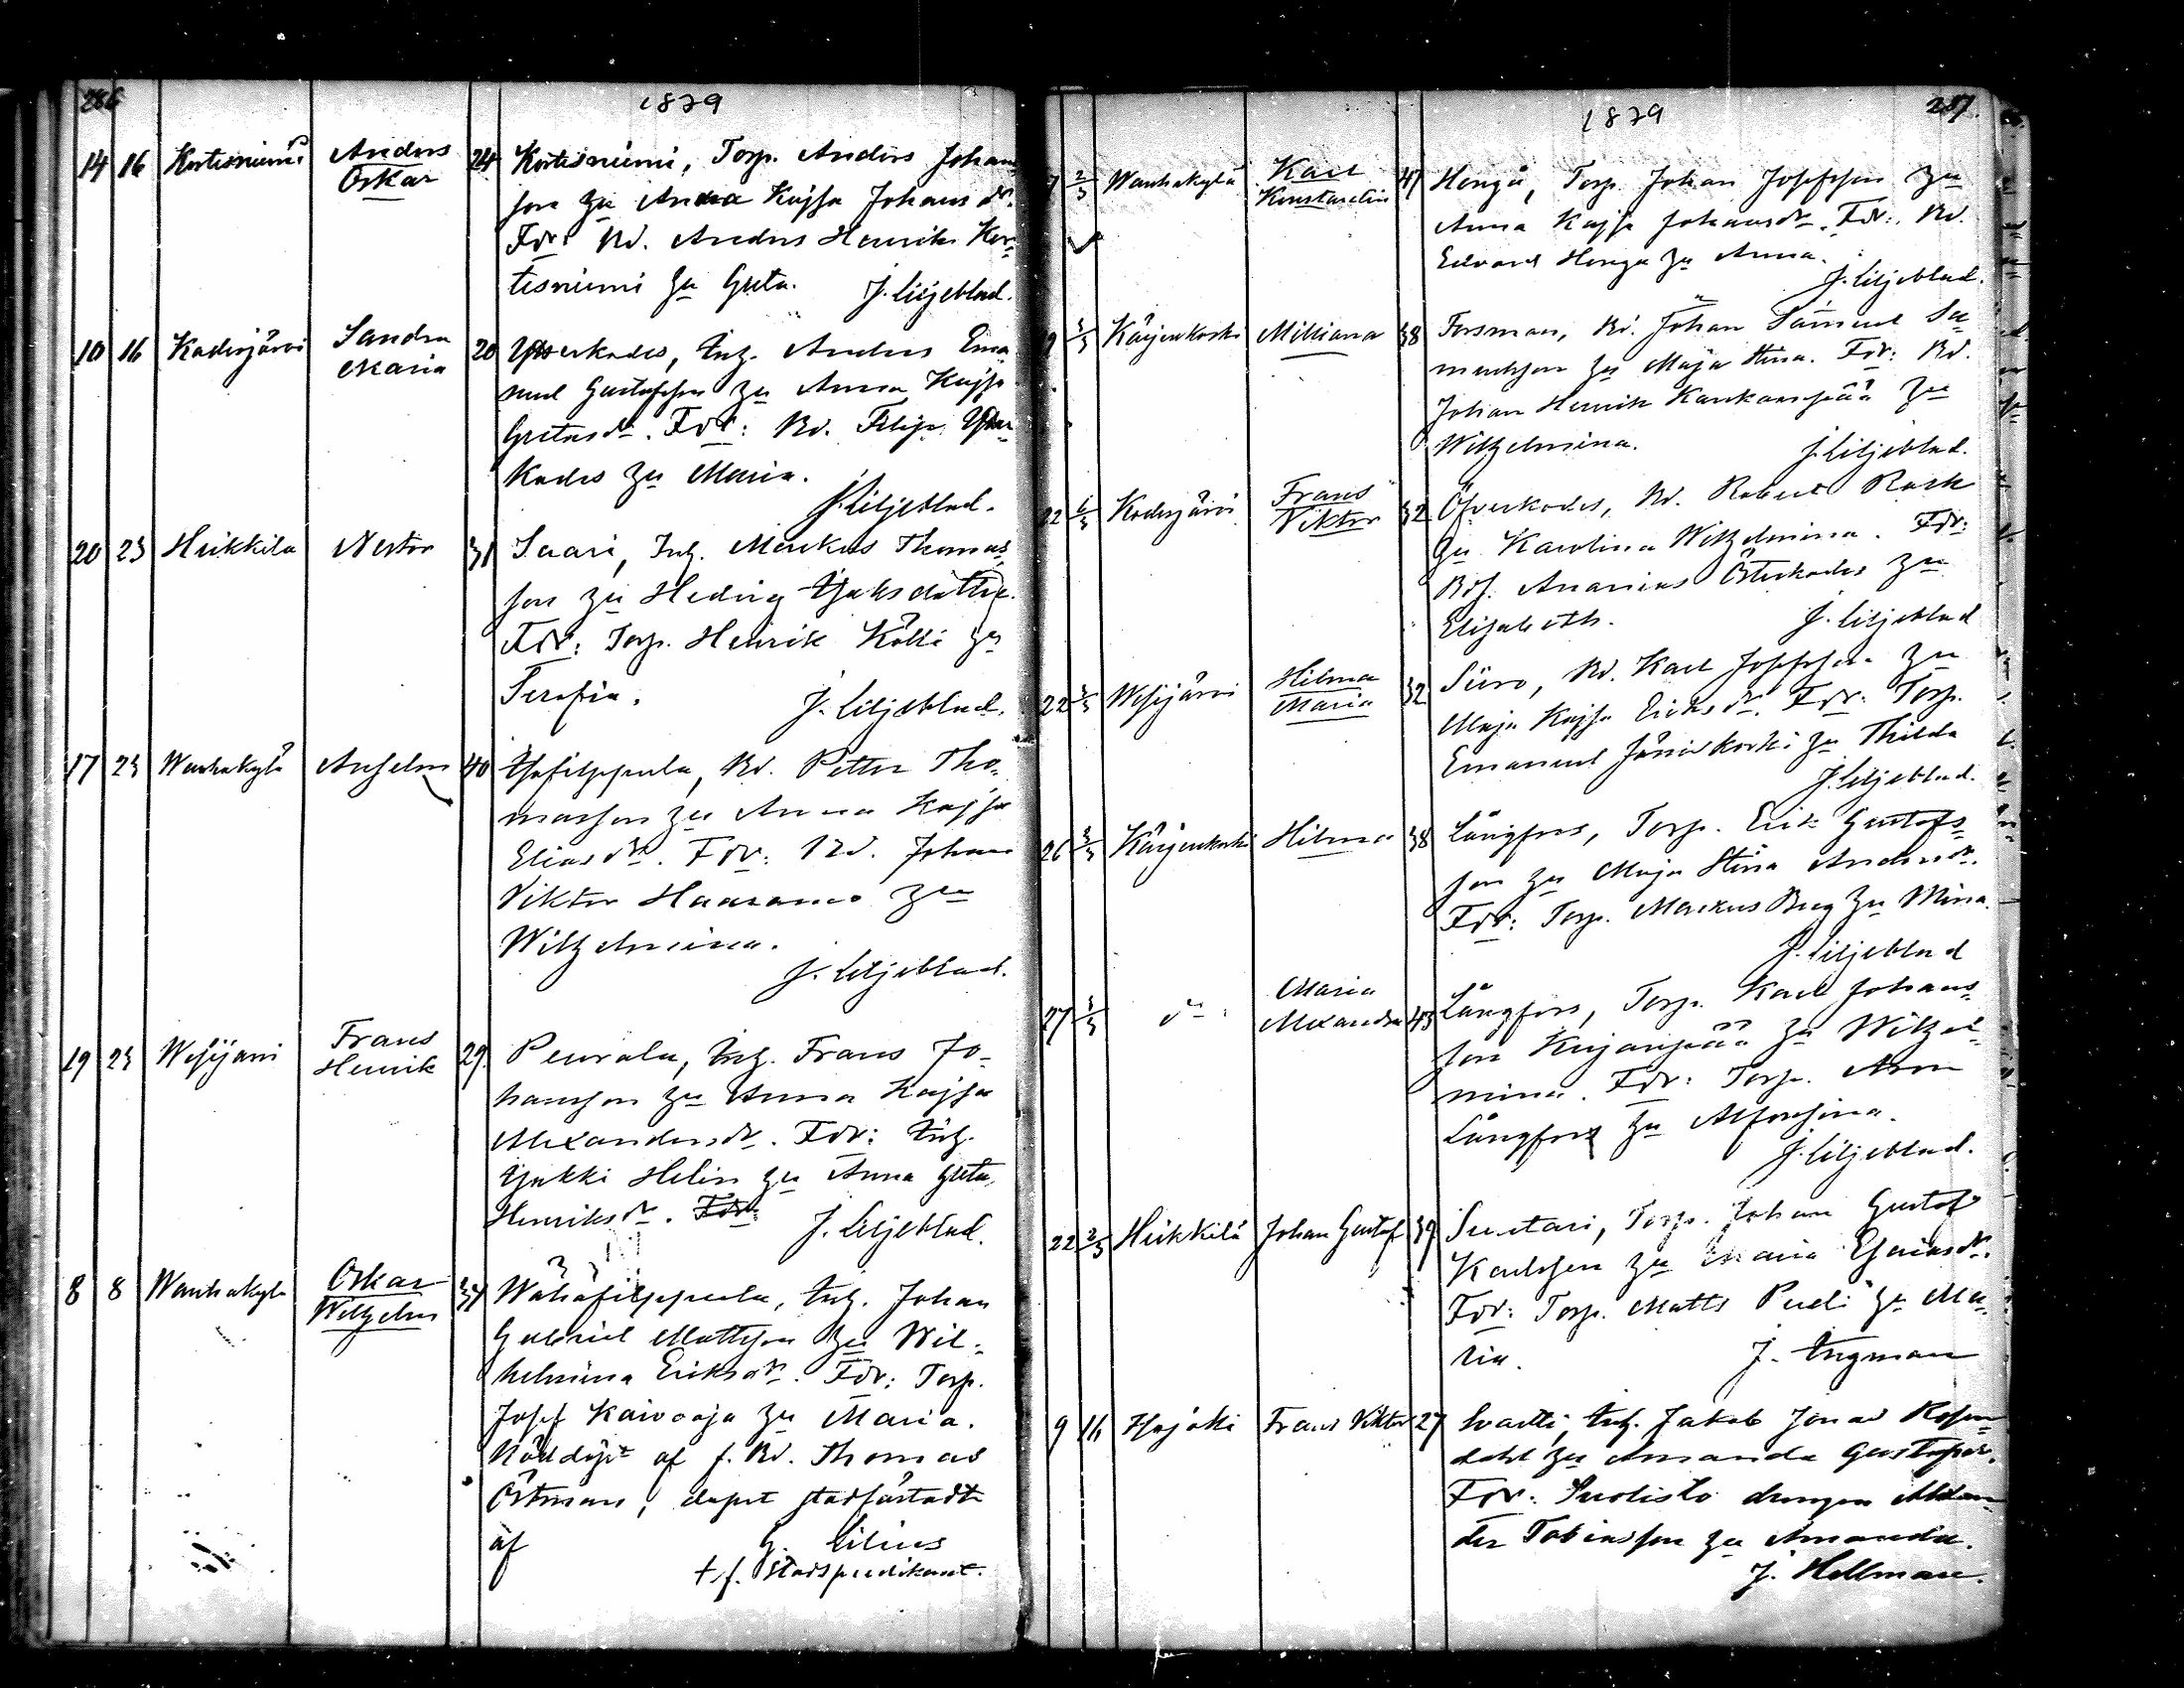 286
1879
14 16 Kortesniemi Anders Oskar 24 Kortesniemi, Torp. Anders Johans-
son zu Anna Kajsa Johansdr.
Fdr: Bd. Anders Henrik Kor-
tesniemi zu Greta. J. Liljeblad.
10 16 Kodesjärvi Sandra Maria 20 Ytterkodes, Inh. Anders Ema-
nuel Gustafsson zu Anna Kajsa
Gretasdr. Fdr: Bd. Filip
Kodes zu Maria.
J. Liljeblad.
20 23 Heikkilä Nestor 31 Saari, Inh. Markus Thomas-
son zu Hedvig Isaksdotter.
Fdr: Torp. Henrik Kölli zu
Serafia. J. Liljeblad.
17 23 Wanhakylä Anselm 40 Isofilppula, Bd. Petter Tho-
masson zu Anna Kajsa
Eliasdr. Fdr: Bd. Johan
Viktor Haaramo zu
Wilhelmina.
J. Liljeblad.
19 23 Wesijärvi Frans Henrik 29. Peurala, Inh. Frans Jo-
hansson zu Anna Kajsa
Alexandersdr. Fdr: Inh.
Isakki Helin zu Anna Greta
Henriksdr. Fdr: J. Liljeblad.
8 8 Wanhakylä Oskar Wilhelm 34 Wähäfilppula, Inh. Johan
Gabriel Mattsson zu Wil-
helmina Eriksdr. Fdr: Torp.
Josef Kaivooja zu Maria.
Nöddöpt af f. Bd. Thomas
Östman, dopet stadfästadt
af G. Lilius
t. f. Stadspredikant.
1879
287.
7 2/3 Wanhakylä Karl Konstantin 47 Honga, Torp. Johan Josefsson zu
Anna Kajsa Johansdr. Fdr: Bd.
Edvard Honga zu Anna.
J. Liljeblad.
3/3 Kärjenkoski Milliana 38 Forsman, Bd. Johan Samuel Sa-
muelsson zu Maja Stina. Fdr: Bd.
Johan Henrik Kankaanpää zu
Wilhelmina. J. Liljeblad.
22 6/3 Kodesjärvi Frans Viktor 32 Öfverkodes, Bd. Robert Rosk
zu Karolina Wilhelmina. Fdr:
Bds. Ananias Österkodes zu
Elisabeth. J. Liljeblad
22 Wesijärvi Hilma Maria 32 Siiro, Bd. Karl Josefsson zu
Maja Kajsa Eriksdr. Fdr: Torp.
Emanuel Jäniskoski zu Thilda
J. Liljeblad.
26 3/3 Kärjenkoski Hilma 38 Långfors, Torp. Erik Gustafs-
son zu Maja Stina Andersdr.
Fdr: Torp. Markus Berg zu Mina.
J. Liljeblad
27 do Maria Alexandra 43 Långfors, Torp. Karl Johans-
son Kujanpää zu Wilhel-
mina. Fdr: Torp. Aron
Långfors zu Alfonsina.
J. Liljeblad.
22 2/3 Heikkilä Johan Gustaf 39 Suutari, Torp. Johan Gustaf
Karlsson zu Maria Esaiasdr.
Fdr: Torp. Matts Puoli zu Ma-
ria. J. Engman
9 16 Frans Viktor 27 Svartti, Inh. Jakob Jonas Rosen-
dahl zu Amanda Gustafsdr.
Fdr: Suolisto drengen Alexan-
der Tobiasson zu Amanda.
J. Hellman.